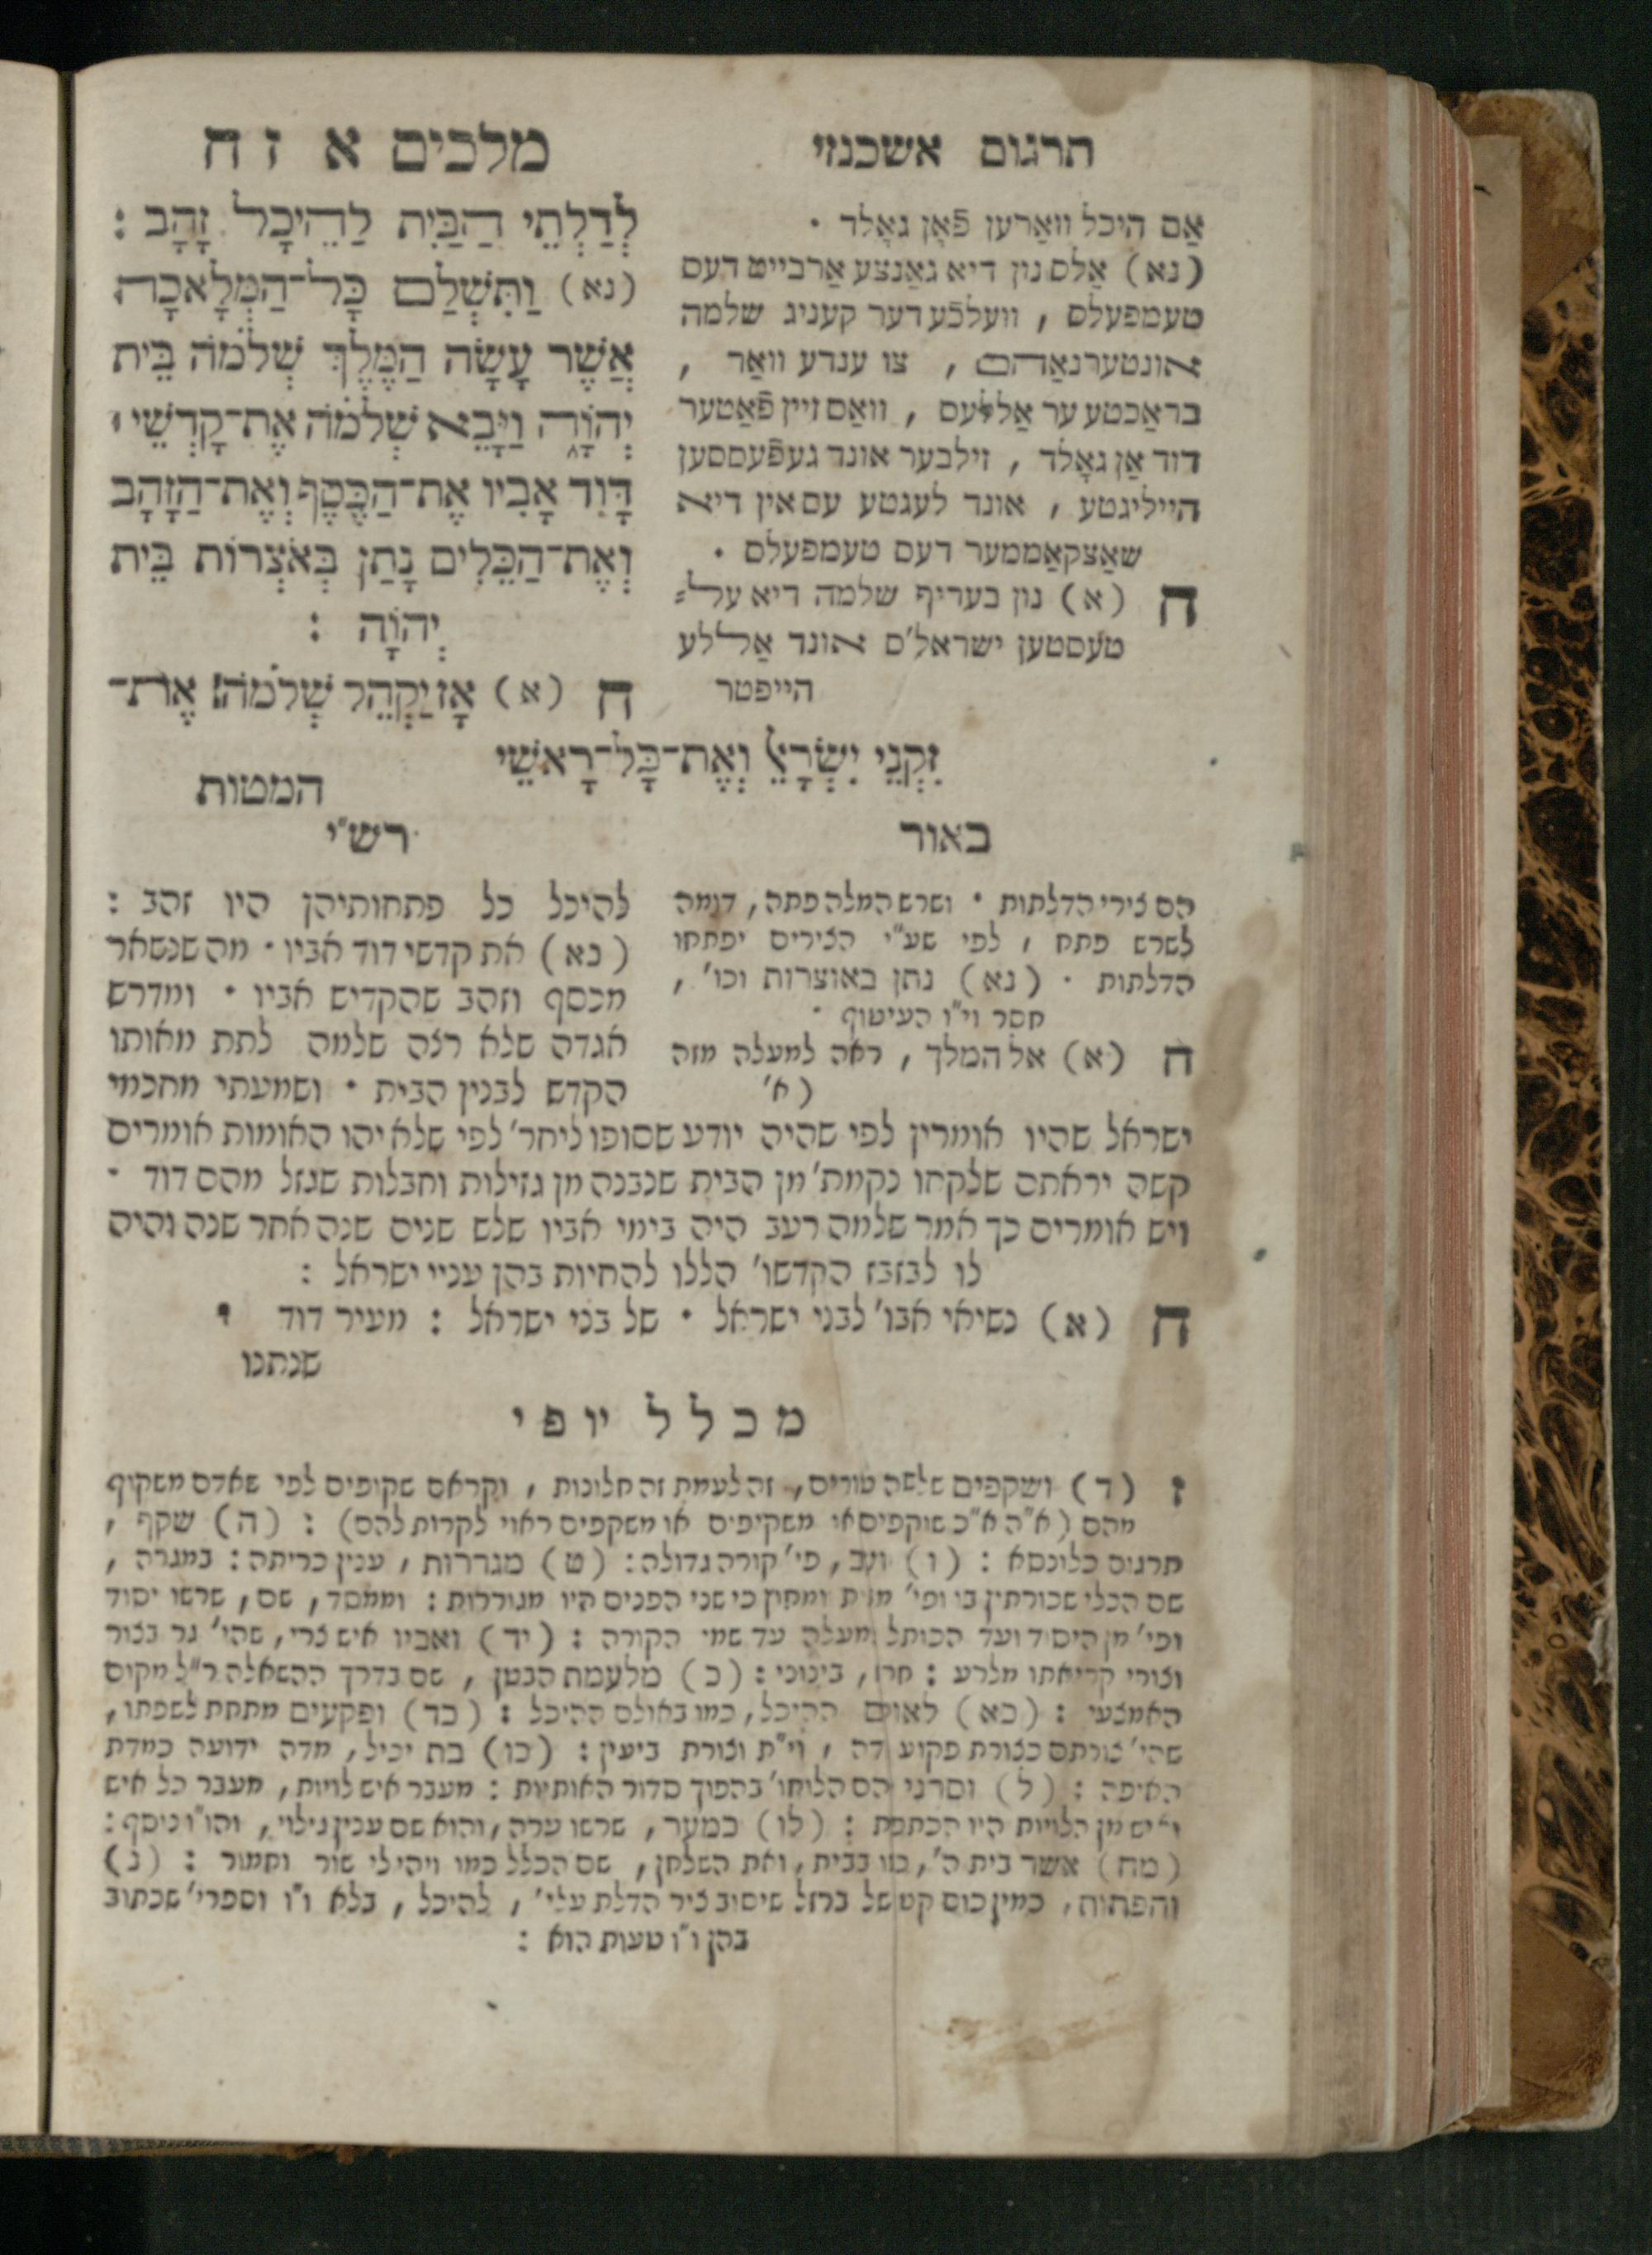 תרגום אשכנזי
מלכים א ז ח
לְדַלְתֵי הַבַּיִת לַהֵיכָל זָהָב :
(נא) וַתִּשְׁלַם כָּל־הַמְּלָאכָה
אֲשֶׁר עָשָׂה הַמֶּלֶךְ שְׁלֹמֹה בֵּית
יְהוָֹה וַיָּבֵא שְׁלֹמֹה אֶת־קָדְשֵׁי ׀
דָּוִד אָבִיו אֶת־הַכֶּסֶף וְאֶת־הַזָּהָב
וְאֶת־הַכֵּלִים נָתַן בְּאֹצְרוֹת בֵּית
יְהוָֹה :
ח (א) אָז יַקְהֵל שְׁלֹמֹה אֶת־
זִקְנֵי יִשְׂרָאֵל וְאֶת־כָּל־רָאשֵׁי
המטות
אַם היכל ווארען פֿאָן גאָלד .
(נא) אַלס נון דיא גאַנצע אַרבייט דעס
טעמפעלס , וועלכֿע דער קעניג שלמה
אונטערנאַהם , צו ענדע וואַר ,
בראַכטע ער אַללעס , וואַס זיין פֿאַטער
דוד אַן גאָלד , זילבער אונד געפֿעססען
הייליגטע , אונד לעגטע עס אין דיא
שאַצקאַממער דעס טעמפעלס .
ח (א) נון בעריף שלמה דיא על⸗
טעסטען ישראל'ס אונד אַללע
הייפטר
באור
הם צירי הדלתות . ושרש המלה פתה, דומה
לשרש פתח , לפי שע"י הצירים יפתחו
הדלתות . (נא) נתן באוצרות וכו' ,
חסר וי"ו העיטוף .
ח (א) אל המלך , ראה למעלה מזה
(א'
רש"י
להיכל כל פתחותיהן היו זהב :
(נא) את קדשי דוד אביו . מה שנשאר
מכסף וזהב שהקדיש אביו . ומדרש
אגדה שלא רצה שלמה לתת מאותו
הקדש לבנין הבית . ושמעתי מחכמי
ישראל שהיו אומרין לפי שהיה יודע שסופו ליחר' לפי שלא יהו האומות אומרים
קשה יראתם שלקחו נקמת' מן הבית שנבנה מן גזילות וחבלות שגזל מהם דוד .
ויש אומרים כך אמר שלמה רעב היה בימי אביו שלש שנים שנה אחר שנה והיה
לו לבזבז הקדשו' הללו להחיות בהן עניי ישראל :
ח (א) נשיאי אבו' לבני ישראל . של בני ישראל : מעיר דוד .
שנתנו
מכלל יופי
ז (ד) ושקפים שלשה טורים, זה לעמת זה חלונות , וקראם שקופים לפי שאדם משקוף
מהם (א"ה א"כ שוקפים או משקיפים או משקפים ראוי לקרות להם) : (ה) שקף ,
תרגום כלונסא : (ו) ועב, פי' קורה גדולה: (ט) מגררות , ענין כריתה: במגרה ,
שם הכלי שכורתין בו ופי' מבית ומחוץ כי שני הפנים היו מגוררות : וממסד, שם, שרשו יסוד
ופי' מן היסוד ועד הכותל מעלה עד שמי הקורה : (יד) ואביו איש צרי, שהי' גר בצור
וצורי קריאתו מלרע : חרו, בינוני : (כ) מלעמת הבטן , שם בדרך ההשאלה ר"ל מקום
האמצעי : (כא) לאולם ההיכל, כמו באולם ההיכל : (כד) ופקעים מתחת לשפתו,
שהי' צורתם כצורת פקוע דה , וי"ת וצורת ביעין : (כו) בת יכיל, מדה ידועה כמדת
האיפה : (ל) וסרני הם הלוחו' בהפוך סדור האותיות : מעבר איש לויות, מעבר כל איש
ואיש מן הלויות היו הכתפת : (לו) כמער, שרשו ערה, והוא שם ענין גילוי, והו"ו נוסף :
(מח) אשר בית ה', כמו בבית, ואת השלחן, שם הכלל כמו ויהי לי שור וחמור : (נ)
והפתות, כמין כוס קט של ברזל שיסוב ציר הדלת עלי' , להיכל , בלא וי"ו וספרי' שכתוב
בהן ו"ו טעות הוא :